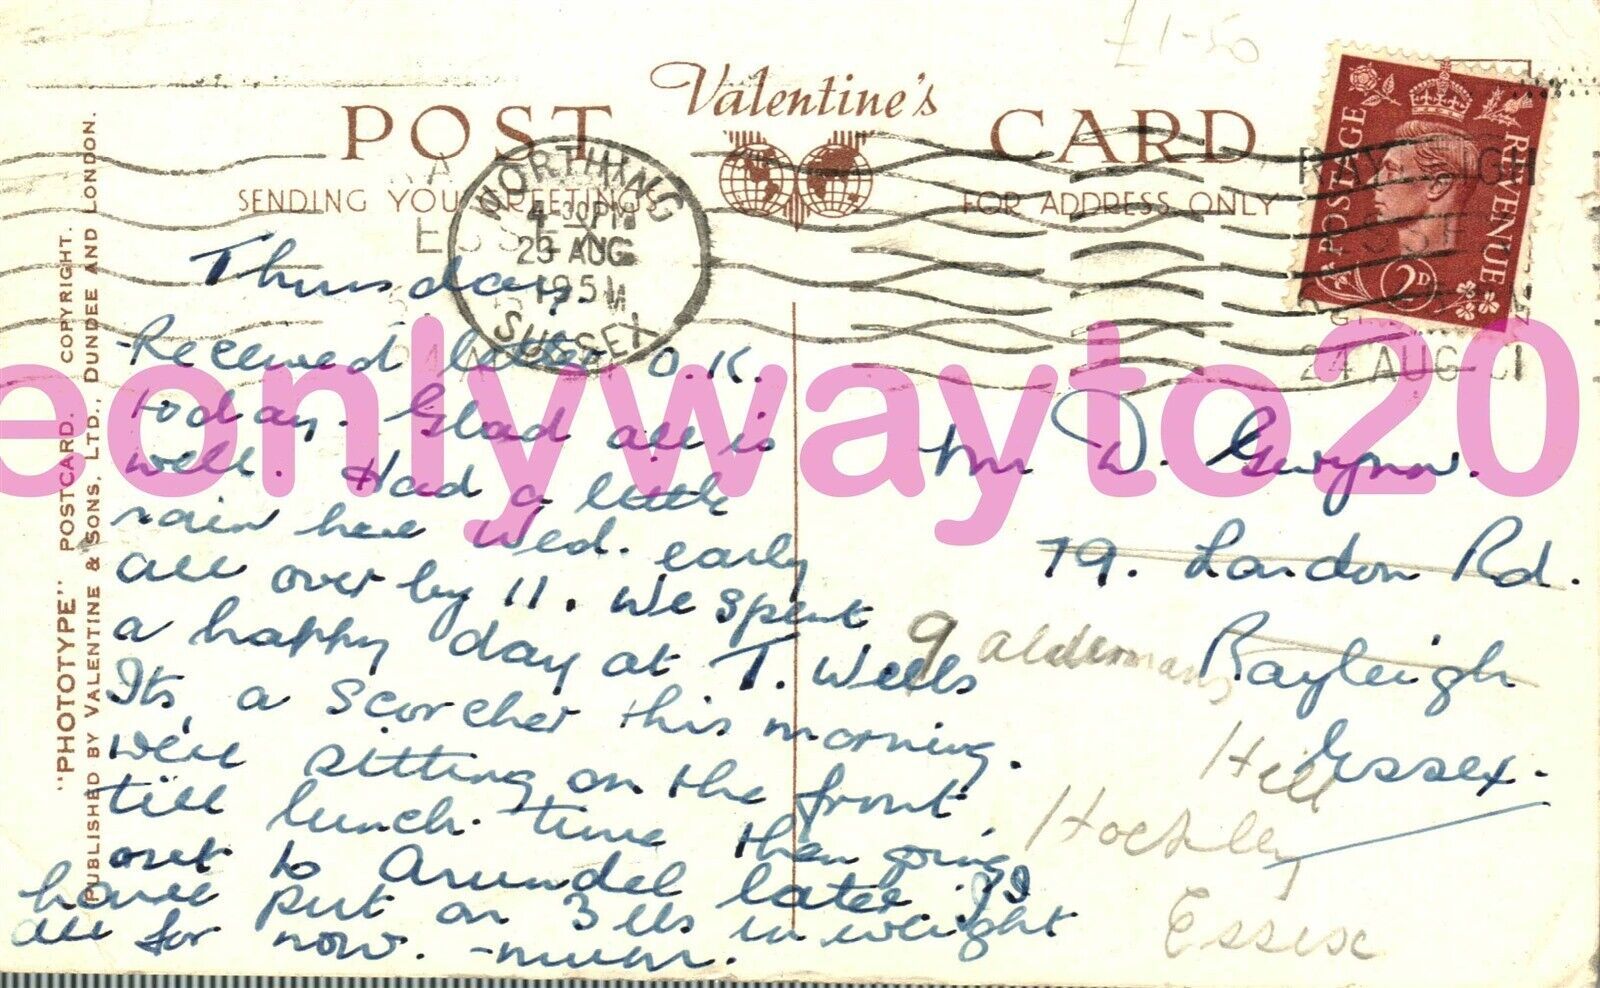 £1-50
Valentine's
POST CARD
SENDING YOU GREETINGS
FOR ADDRESS ONLY
WORTHING
4-30PM
23 AUG
1951
SUSSEX
RAYLEIGH
ESSEX
24 AUG 51
POSTAGE
REVENUE
2D
"PHOTOTYPE" POSTCARD. COPYRIGHT.
PUBLISHED BY VALENTINE & SONS, LTD., DUNDEE AND LONDON.
Thursday
Received letter O.K.
today. Glad all is
well. Had a little
rain here Wed. early
all over by 11. We spent
a happy day at T. Wells
Its a scorcher this morning.
we're sitting on the front
till lunch time then going
out to Arundel later. I
have put on 3 lbs in weight
all for now. - mum.
Mr D. Gwynn.
79. London Rd.
Rayleigh
Essex.
9 Aldermans
Hill
Hockley
Essex
eonlywayto20